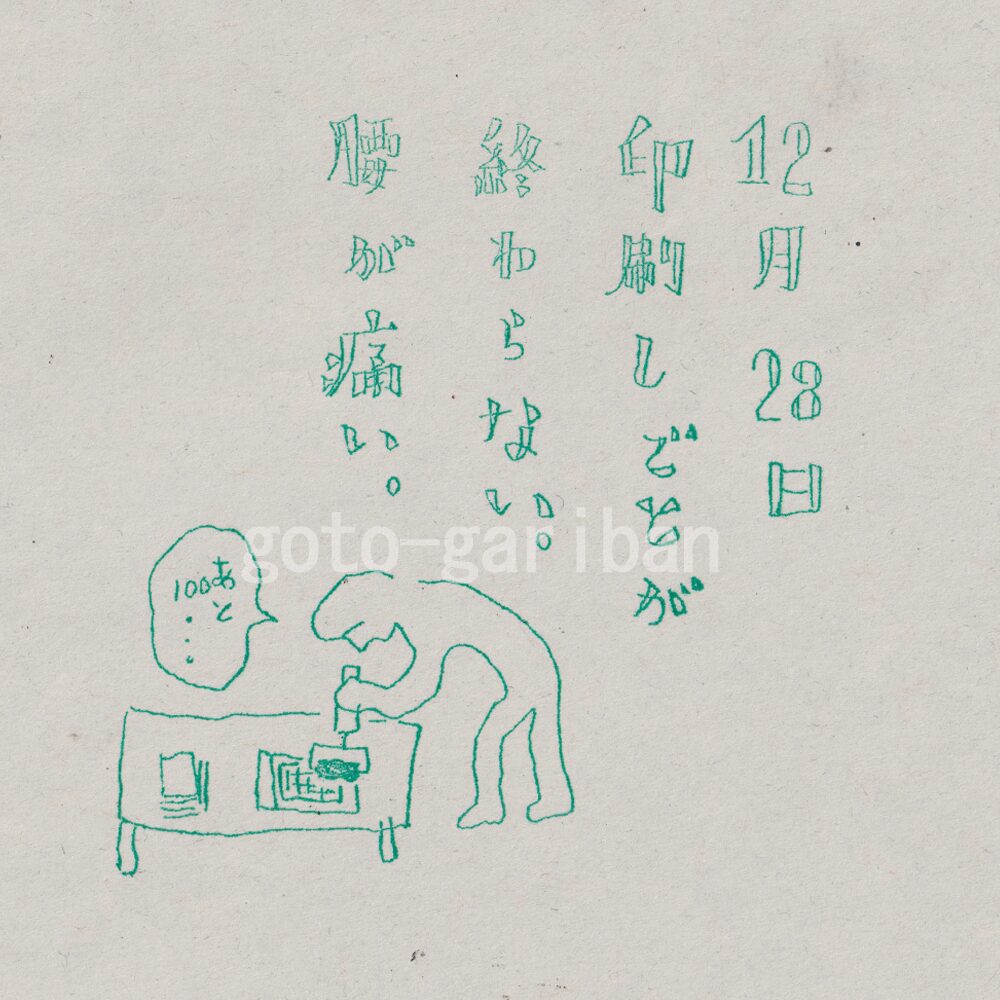 12月28日
印刷しどおが
終わらない。
腰が痛い。
あと
100...
goto-gariban